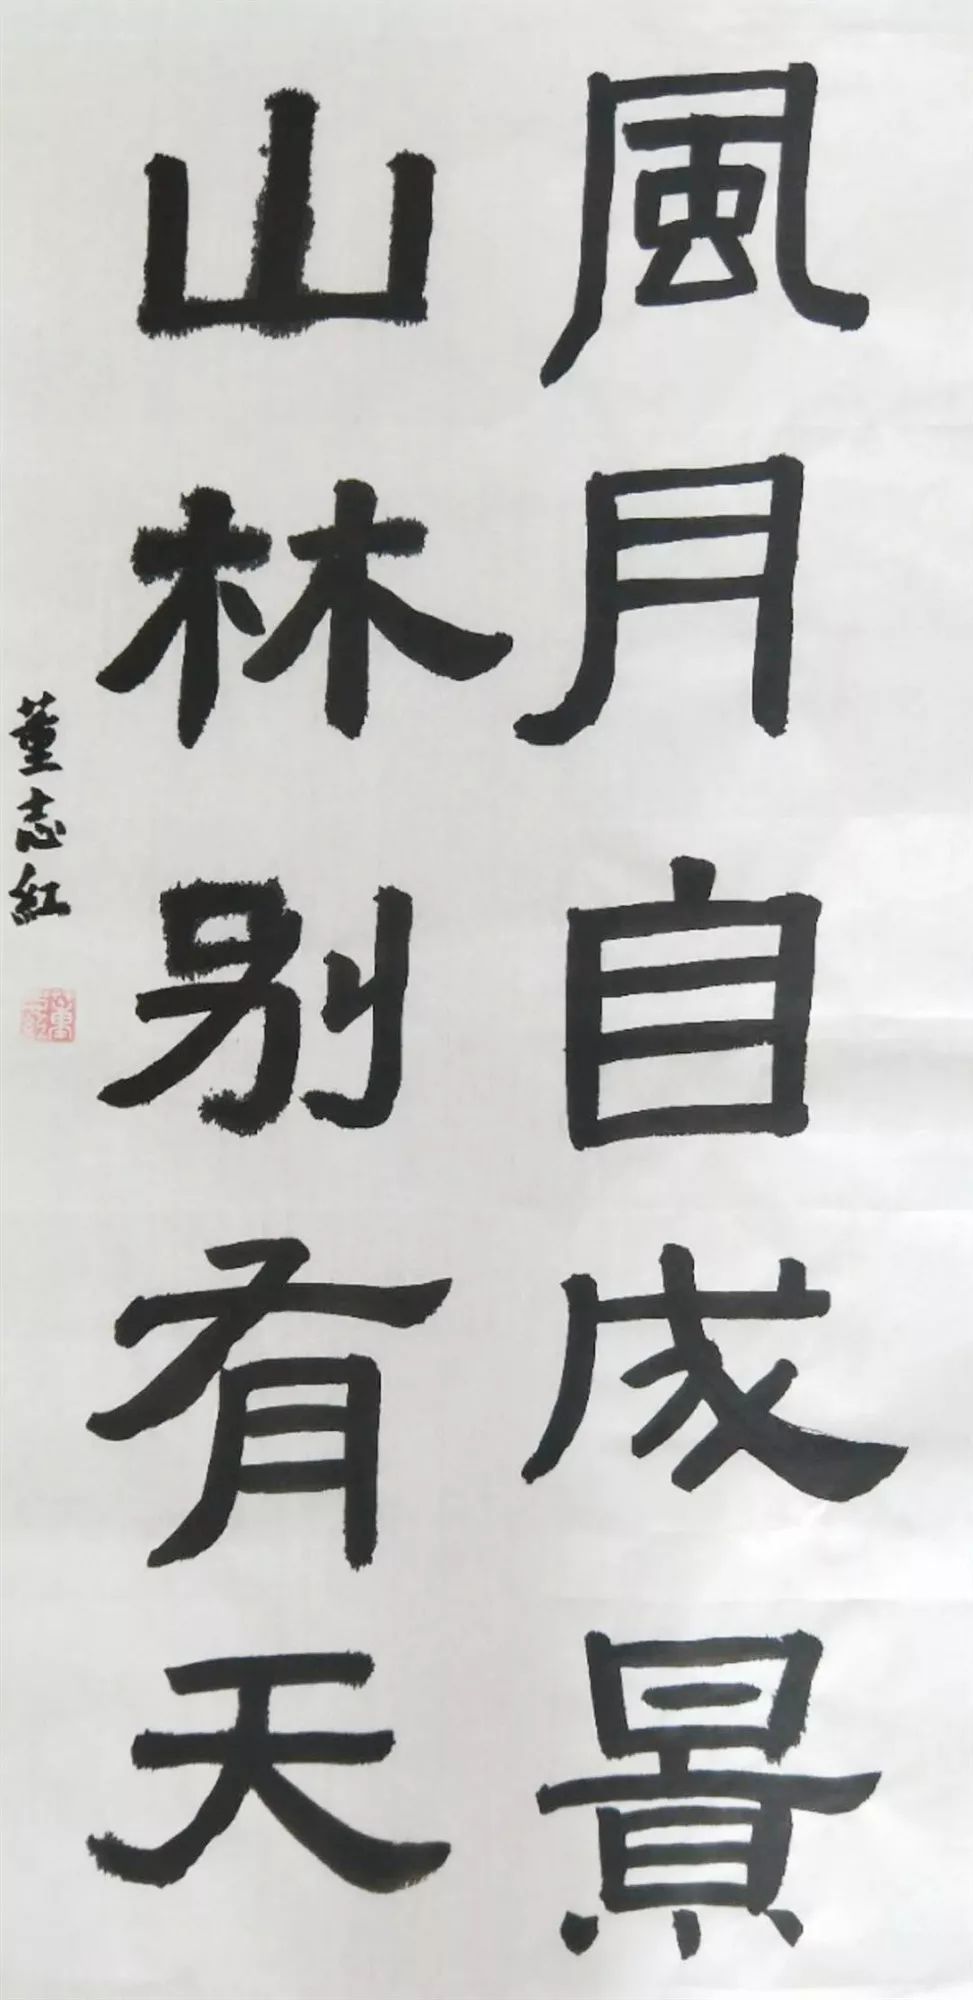 風月自成景
山林别有天
董志红